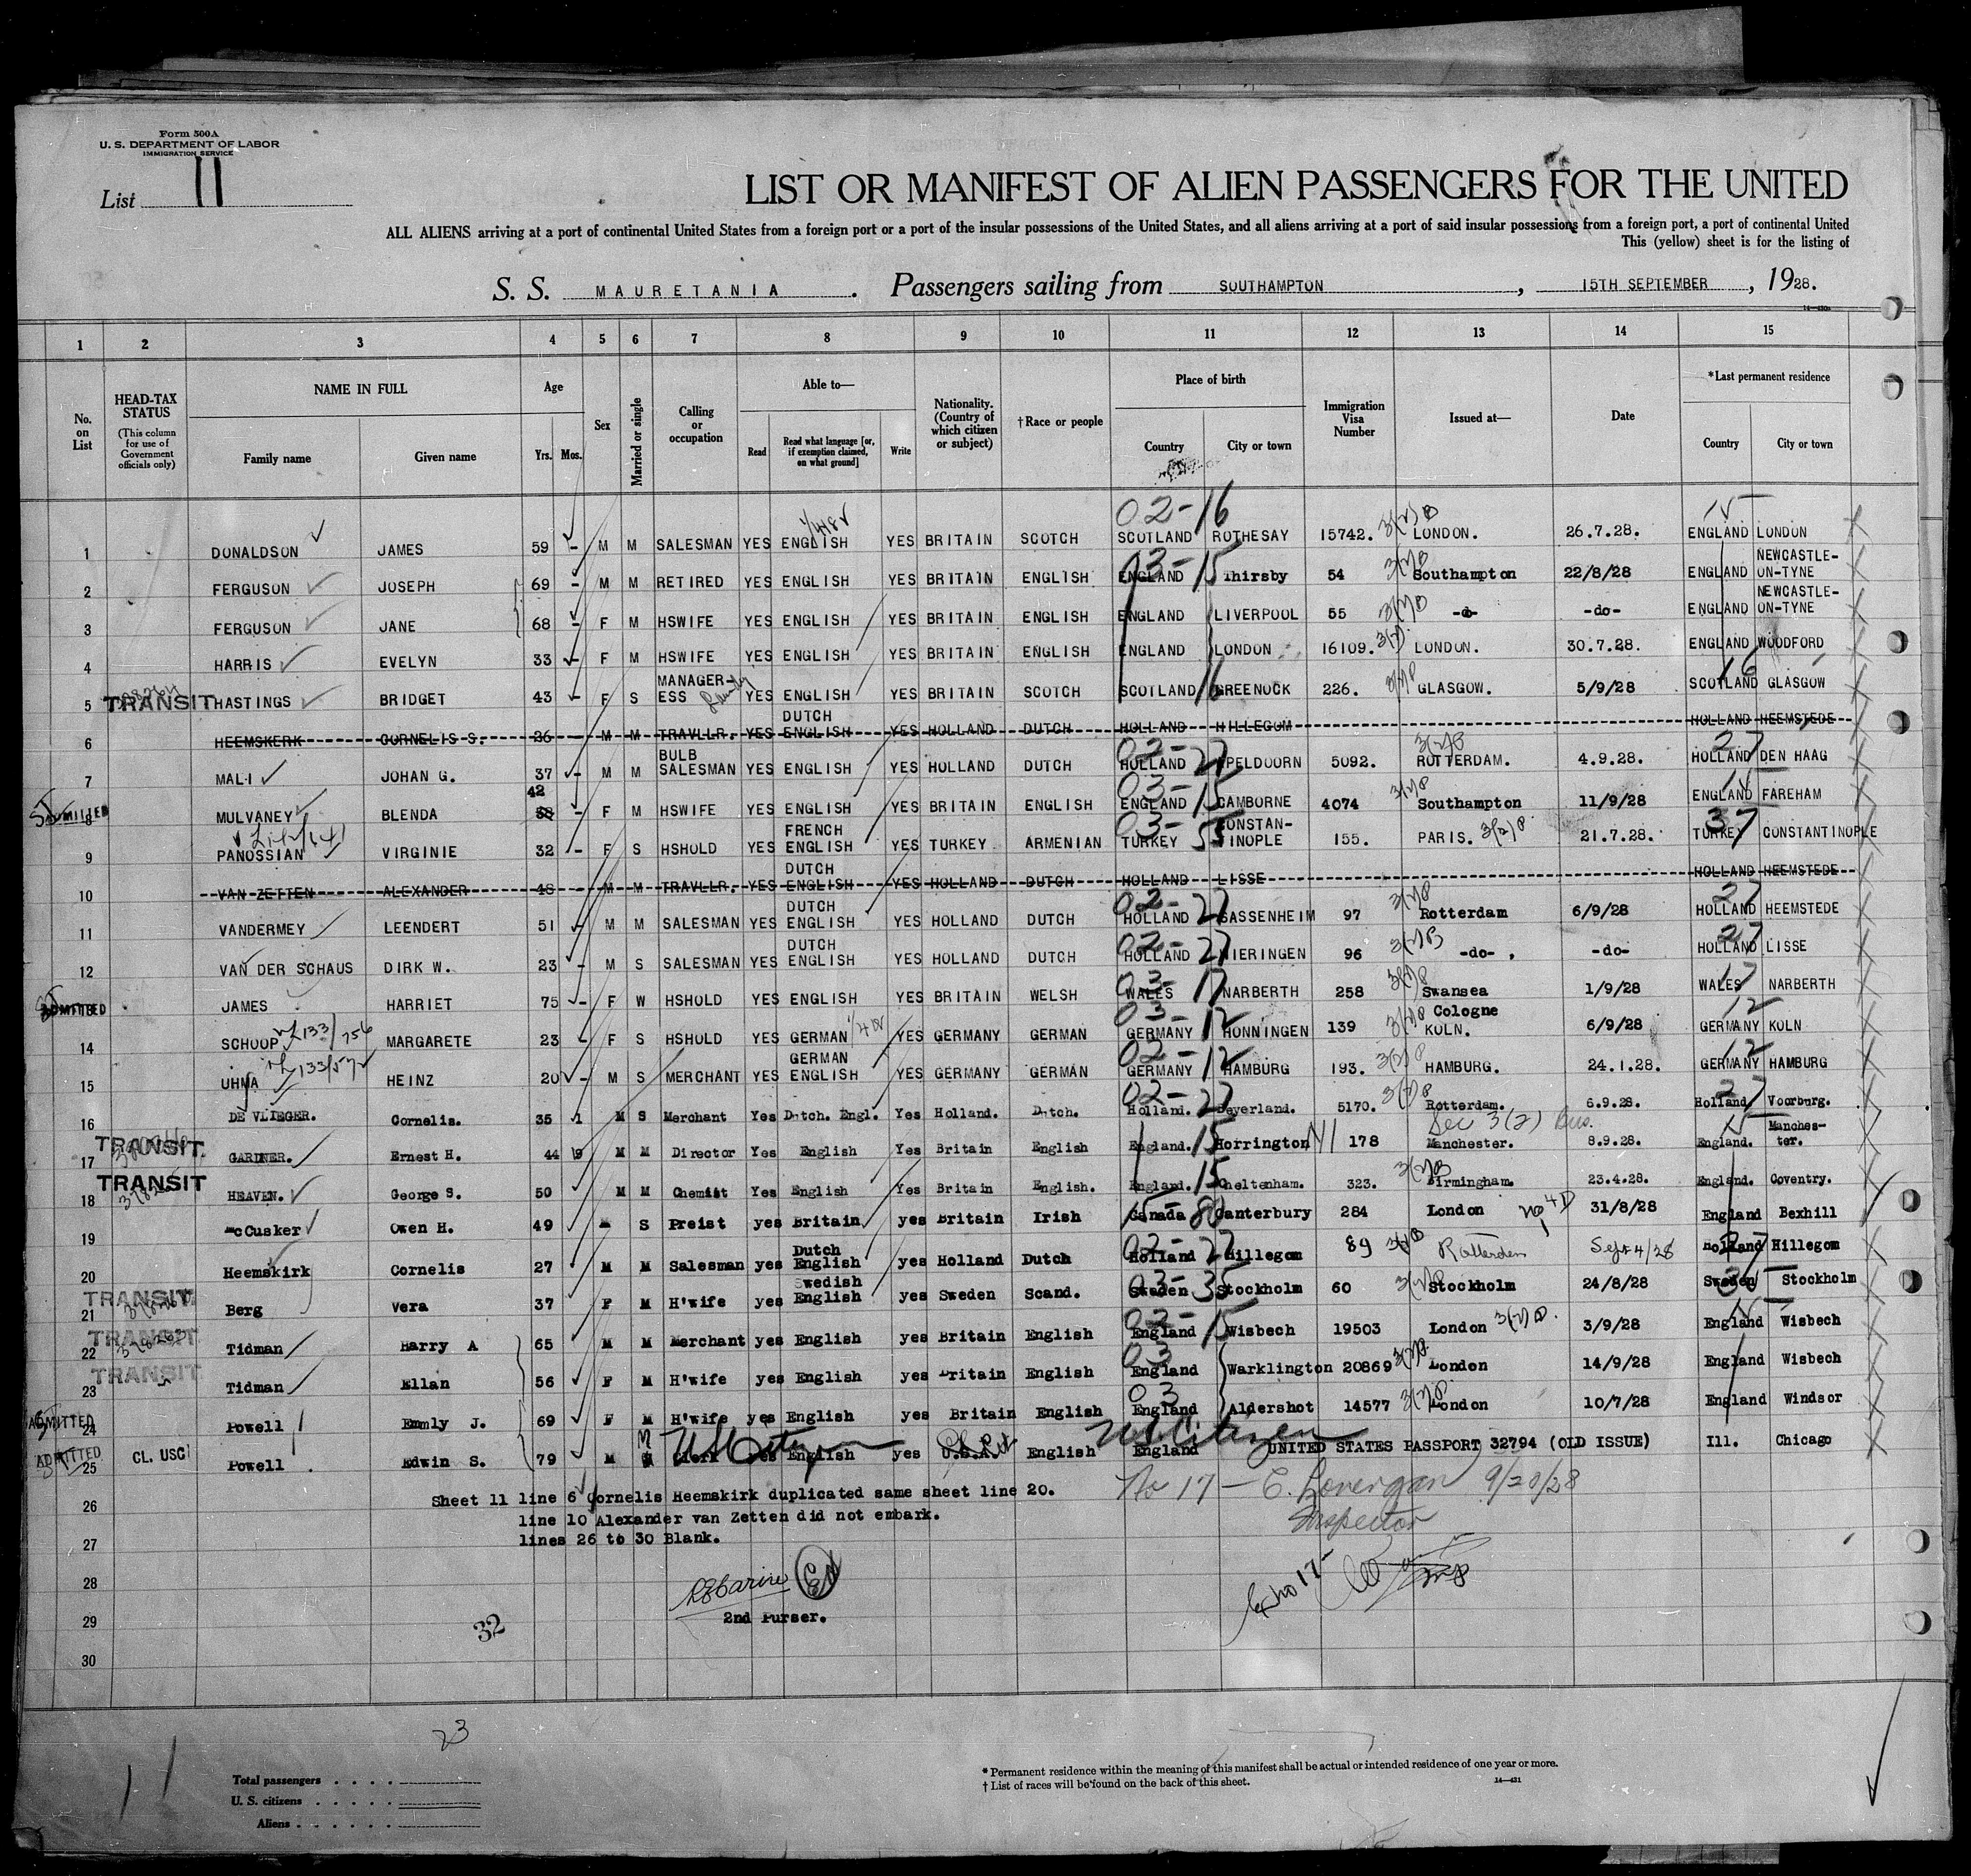 Form 500A
U. S. DEPARTMENT OF LABOR
IMMIGRATION SERVICE
List 11
LIST OR MANIFEST OF ALIEN PASSENGERS FOR THE UNITED
ALL ALIENS arriving at a port of continental United States from a foreign port or a port of the insular possessions of the United States, and all aliens arriving at a port of said insular possessions from a foreign port, a port of continental United
This (yellow) sheet is for the listing of
S. S. MAURETANIA. Passengers sailing from SOUTHAMPTON, 15TH SEPTEMBER, 1928.
1 2 3 4 5 6 7 8 9 10 11 12 13 14 15
No. on List HEAD-TAX STATUS (This column for use of Government officials only) NAME IN FULL Family name Given name Age Yrs. Mos. Sex Married or single Calling or occupation Able to— Read Read what language [or, if exemption claimed, on what ground] Write Nationality. (Country of which citizen or subject) †Race or people Place of birth Country City or town Immigration Visa Number Issued at— Date *Last permanent residence Country City or town
1 DONALDSON JAMES 59 - M M SALESMAN YES ENGLISH YES BRITAIN SCOTCH 02-16 SCOTLAND ROTHESAY 15742. LONDON. 26.7.28. 15 ENGLAND LONDON
2 FERGUSON JOSEPH 69 - M M RETIRED YES ENGLISH YES BRITAIN ENGLISH 03-15 ENGLAND Thirsby 54 Southampton 22/8/28 ENGLAND NEWCASTLE-ON-TYNE
3 FERGUSON JANE 68 - F M HSWIFE YES ENGLISH YES BRITAIN ENGLISH ENGLAND LIVERPOOL 55 -do- -do- ENGLAND NEWCASTLE-ON-TYNE
4 HARRIS EVELYN 33 - F M HSWIFE YES ENGLISH YES BRITAIN ENGLISH ENGLAND LONDON 16109. LONDON. 30.7.28. ENGLAND WOODFORD
5 TRANSIT HASTINGS BRIDGET 43 - F S MANAGER-ESS YES ENGLISH YES BRITAIN SCOTCH SCOTLAND 16 GREENOCK 226. GLASGOW. 5/9/28 16 SCOTLAND GLASGOW
6 HEEMSKERK CORNELIS S. 26 - M M TRAVLLR. YES DUTCH ENGLISH YES HOLLAND DUTCH HOLLAND HILLEGOM HOLLAND HEEMSTEDE
7 MALI JOHAN G. 37 - M M BULB SALESMAN YES ENGLISH YES HOLLAND DUTCH 02-27 HOLLAND APELDOORN 5092. ROTTERDAM. 4.9.28. 27 HOLLAND DEN HAAG
8 ADMITTED MULVANEY BLENDA 42 38 - F M HSWIFE YES ENGLISH YES BRITAIN ENGLISH 03-15 ENGLAND CAMBORNE 4074 Southampton 11/9/28 ENGLAND FAREHAM
9 PANOSSIAN VIRGINIE 32 - F S HSHOLD YES FRENCH ENGLISH YES TURKEY ARMENIAN 03-55 TURKEY CONSTAN-TINOPLE 155. PARIS. 21.7.28. 37 TURKEY CONSTANTINOPLE
10 VAN ZETTEN ALEXANDER 48 - M M TRAVLLR. YES DUTCH ENGLISH YES HOLLAND DUTCH HOLLAND LISSE HOLLAND HEEMSTEDE
11 VANDERMEY LEENDERT 51 - M M SALESMAN YES DUTCH ENGLISH YES HOLLAND DUTCH 02-27 HOLLAND SASSENHEIM 97 Rotterdam 6/9/28 27 HOLLAND HEEMSTEDE
12 VAN DER SCHAUS DIRK W. 23 - M S SALESMAN YES DUTCH ENGLISH YES HOLLAND DUTCH 02-27 HOLLAND WIERINGEN 96 -do- -do- 27 HOLLAND LISSE
13 ADMITTED JAMES HARRIET 75 - F W HSHOLD YES ENGLISH YES BRITAIN WELSH 03-17 WALES NARBERTH 258 Swansea 1/9/28 17 WALES NARBERTH
14 SCHOOP MARGARETE 23 - F S HSHOLD YES GERMAN YES GERMANY GERMAN 03-12 GERMANY HONNINGEN 139 Cologne KOLN. 6/9/28 12 GERMANY KOLN
15 UHMA HEINZ 20 - M S MERCHANT YES GERMAN ENGLISH YES GERMANY GERMAN 02-12 GERMANY HAMBURG 193. HAMBURG. 24.1.28. 12 GERMANY HAMBURG
16 DE VLIEGER. Cornelis. 35 1 M S Merchant Yes Dutch. Engl. Yes Holland. Dutch. 02-27 Holland. Beyerland. 5170. Rotterdam. 6.9.28. 27 Holland Voorburg.
17 TRANSIT. GARDNER. Ernest H. 44 9 M M Director Yes English Yes Britain English England. 15 Horrington 178 Sec 3(2) Bus. Manchester. 8.9.28. 15 England. Manches-ter.
18 TRANSIT HEAVEN. George S. 50 M M Chemist Yes English Yes Britain English. England. 15 Cheltenham. 323. Birmingham. 23.4.28. England. Coventry.
19 McCusker Owen H. 49 S Preist yes Britain yes Britain Irish Canada Canterbury 284 London no 4D 31/8/28 England Bexhill
20 Heemskirk Cornelis 27 M M Salesman yes Dutch English yes Holland Dutch 02-27 Holland Hillegom 89 Rotterdam Sept 4/28 27 Holland Hillegom
21 TRANSIT Berg Vera 37 F M H'wife yes Swedish English yes Sweden Scand. 03-35 Sweden Stockholm 60 Stockholm 24/8/28 Sweden Stockholm
22 TRANSIT Tidman Harry A 65 M M Merchant yes English yes Britain English 02-15 England Wisbech 19503 London 3/9/28 15 England Wisbech
23 TRANSIT Tidman Ellan 56 F M H'wife yes English yes Britain English 03 England Warklington 20869 London 14/9/28 England Wisbech
24 ADMITTED Powell Emmly J. 69 F M H'wife yes English yes Britain English 03 England Aldershot 14577 London 10/7/28 England Windsor
25 ADMITTED CL. USC Powell Edwin S. 79 M M Clerk yes English yes U.S.A. English US Citizen England UNITED STATES PASSPORT 32794 (OLD ISSUE) Ill. Chicago
26 Sheet 11 line 6 Cornelis Heemskirk duplicated same sheet line 20. No 17 - C. Lonergan 9/20/28
line 10 Alexander van Zetten did not embark. Inspector
27 lines 26 to 30 Blank.
28
29 2nd Purser.
32
30
23
11
Total passengers
U. S. citizens
Aliens
* Permanent residence within the meaning of this manifest shall be actual or intended residence of one year or more.
† List of races will be found on the back of this sheet.
14—431